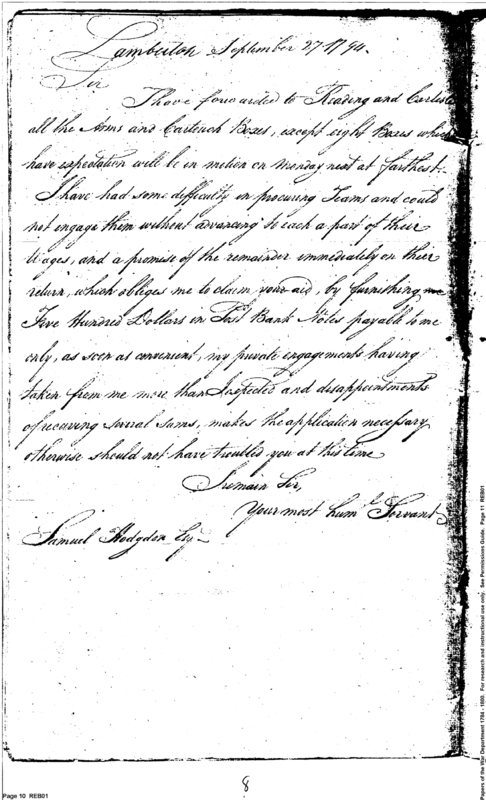 Lamberton September 27 1794.
Sir
I have forwarded to Reading and Carlisle
all the Arms and Cartouch Boxes, except eight Boxes which
have expectation will be in motion on Monday next at farthest.
I have had some difficulty in procuring Teams and could
not engage them without advancing to each a part of their
Wages, and a promise of the remainder immediately on their
return, which obliges me to claim your aid, by furnishing me
Five Hundred Dollars in Bank Notes payable to me
only, as soon as convenient, my private engagements having
taken from me more than I expected and disappointments
of receiving several sums, makes the application necessary
otherwise should not have troubled you at this time
I remain Sir,
Your most humle Servant
Samuel Hodgdon Esqr
8
Page 10 REB01
Papers of the War Department 1784 - 1800. For research and instructional use only. See Permissions Guide. Page 11 REB01